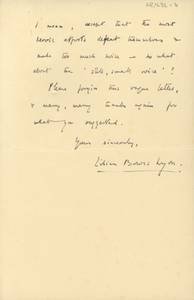 I mean, except that the most
heroic efforts defeat themselves &
make too much noise – so what
about the "still, small voice"?
Please forgive this vague letter,
& many, many thanks again for
what you suggested.
Yours sincerely,
Lilian Bowes Lyon.